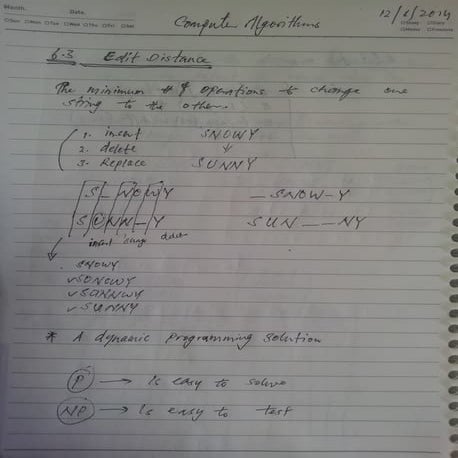 Month. Date.
Computer Algorithms 12/6/2014
6.3 Edit Distance
The minimum # of operations to change one
string to the other.
1. insert SNOWY
2. delete ↓
3. Replace SUNNY
S _ N O W Y _ S N O W - Y
S U N N _ Y S U N _ _ N Y
insert delete
SNOWY
✓ SUNNY
* A dynamic programming solution
P → Is easy to solve
NP → Is easy to test